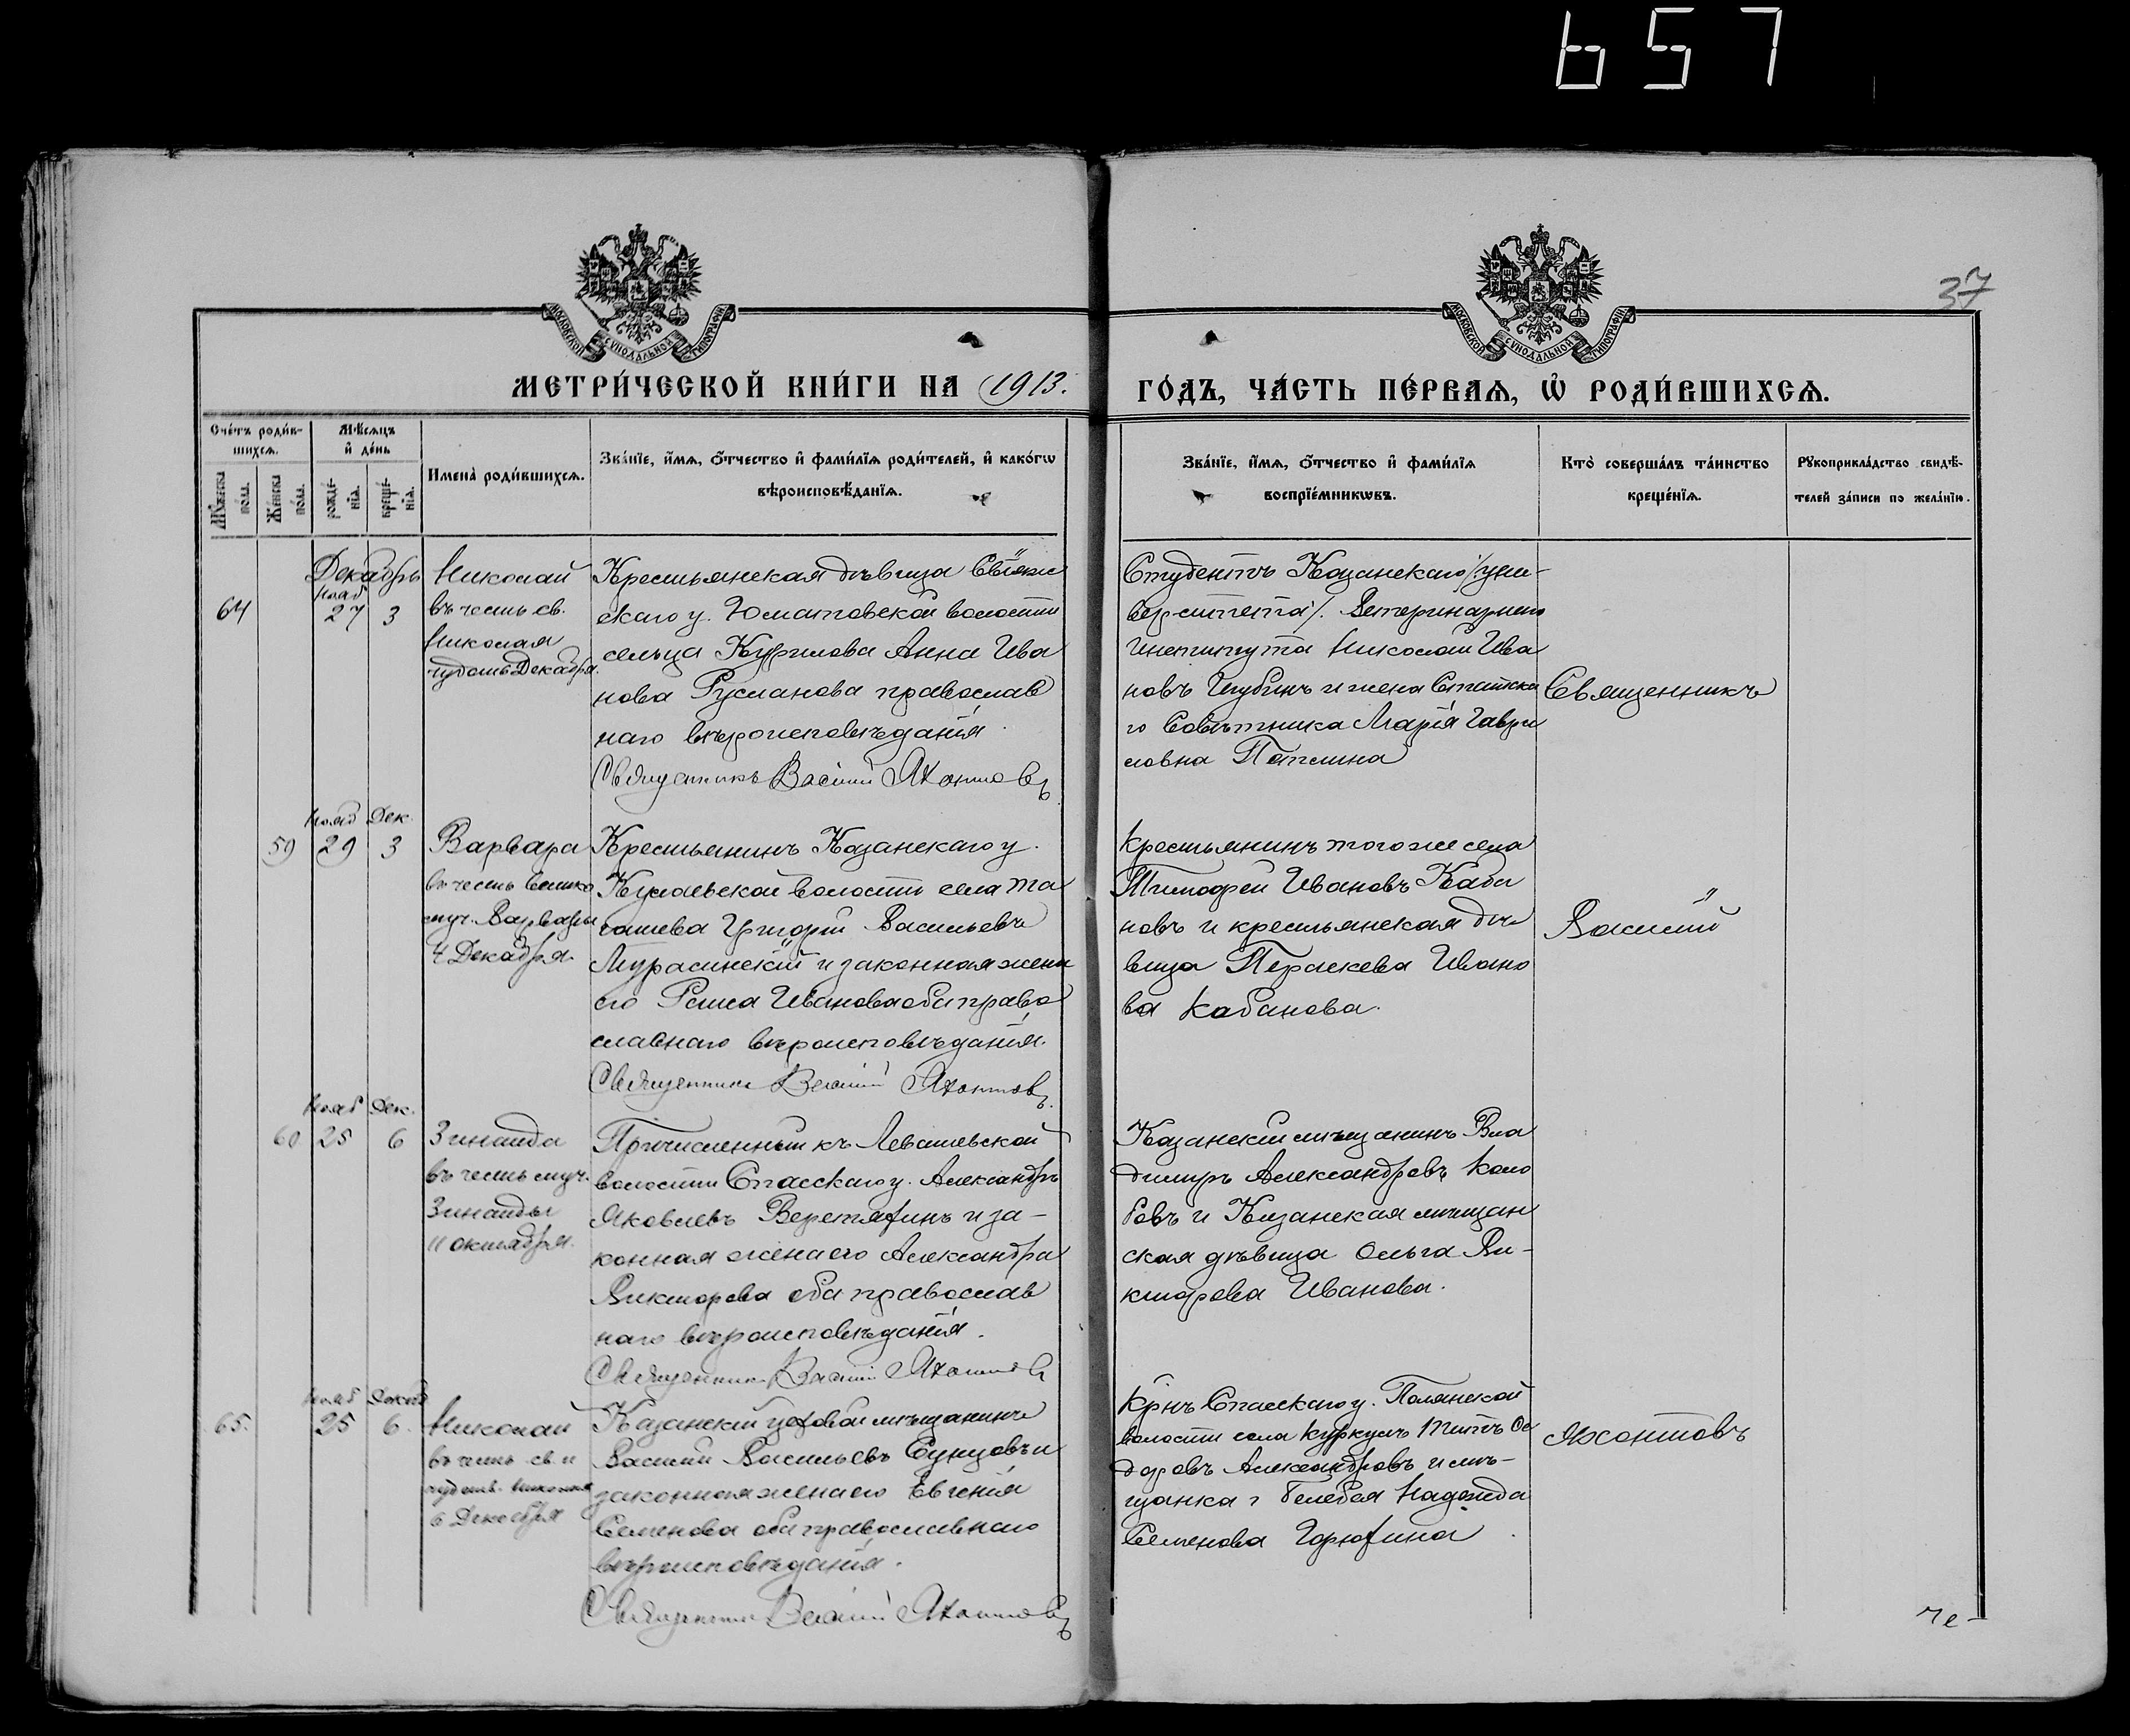 657
37
МОСКОВСКОЙ СѴНОДАЛЬНОЙ ТИПОГРАФІИ
МОСКОВСКОЙ СѴНОДАЛЬНОЙ ТИПОГРАФІИ
МЕТРИ́ЧЕСКОЙ КНИ́ГИ НА 1913.
ГО́ДЪ, ЧА́СТЬ ПЕ́РВАѦ, Ѽ РОДИ́ВШИХСѦ.
Сче́тъ роди́в-
шихсѧ.
Мꙋ́жеска
пола.
Же́нска
по́ла.
Мѣ́сѧцъ
и҆ де́нь
рожде́-
нїѧ.
креще́-
нїѧ.
И҆мена̀ роди́вшихсѧ.
Зва́нїе, и҆́мѧ, о҆́тчество и҆ фами́лїѧ роди́телей, и҆ како́гѡ
вѣроисповѣ́данїѧ.
Зва́нїе, и҆́мѧ, о҆́тчество и҆ фами́лїѧ
воспрїе́мникѡвъ.
Кто̀ соверша́лъ та́инство
креще́нїѧ.
Рꙋкоприкла́дство свидѣ́-
телей за́писи по жела́нїю.
Декабрь
64
Нояб
27
3
Николай
въ честь св.
Николая
чудотв Декабря.
Крестьянская дѣвица Свіяж
скаго у. Юматовской волости
сельца Курилова Анна Ива
нова Русланова православ
наго вѣроисповѣданія.
Священникъ Василій Яхонтовъ
Студентъ Казанскаго /уни-
верситета/. Ветеринарнаго
Института Николай Ива
новъ Шубинъ и жена Статска
го Совѣтника Марія Гаври
ловна
Священникъ
Нояб Дек.
59
29
3
Варвара
въ честь Велико
муч. Варвары
4 Декабря.
Крестьянинъ Казанскаго у.
волости села Та
шева Григорій Васильевъ
и законная жена
его Раиса Иванова оба право
славнаго вѣроисповѣданія.
Священникъ Василій Яхонтовъ.
Крестьянинъ того же села
Тимофей Ивановъ Каба
новъ и крестьянская дѣ
вица Параскева Ивано
ва Кабанова.
Василій
Нояб Дек.
60
25
6
Зинаида
въ честь муч.
Зинаиды
11 октября.
Причисленный къ Левашевской
волости Спасскаго у. Александръ
Яковлевъ Веретяѳинъ и за-
конная жена его Александра
Викторова оба православ
наго вѣроисповѣданія.
Священникъ Василій Яхонтовъ
Казанскій мѣщанинъ Вла
димиръ Александровъ Коло
бовъ и Казанская мѣщан
ская дѣвица Ольга Ви-
кторова Иванова.
Нояб Декаб
65.
25
6.
Николай
въ честь св. и
чудотв. Николая
6 Декабря
Казанскій цеховой мѣщанинъ
Василій Васильевъ Сунцовъ и
законная жена его Евгенія
Семенова оба православнаго
вѣроисповѣданія.
Священникъ Василій Яхонтовъ
Кр̃нъ Спасскаго у. Полянской
волости села Куркуль Титъ Ѳе
доровъ Александровъ и мѣ-
щанка г Белебея Надежда
Семенова Горюѳина.
Яхонтовъ
че-